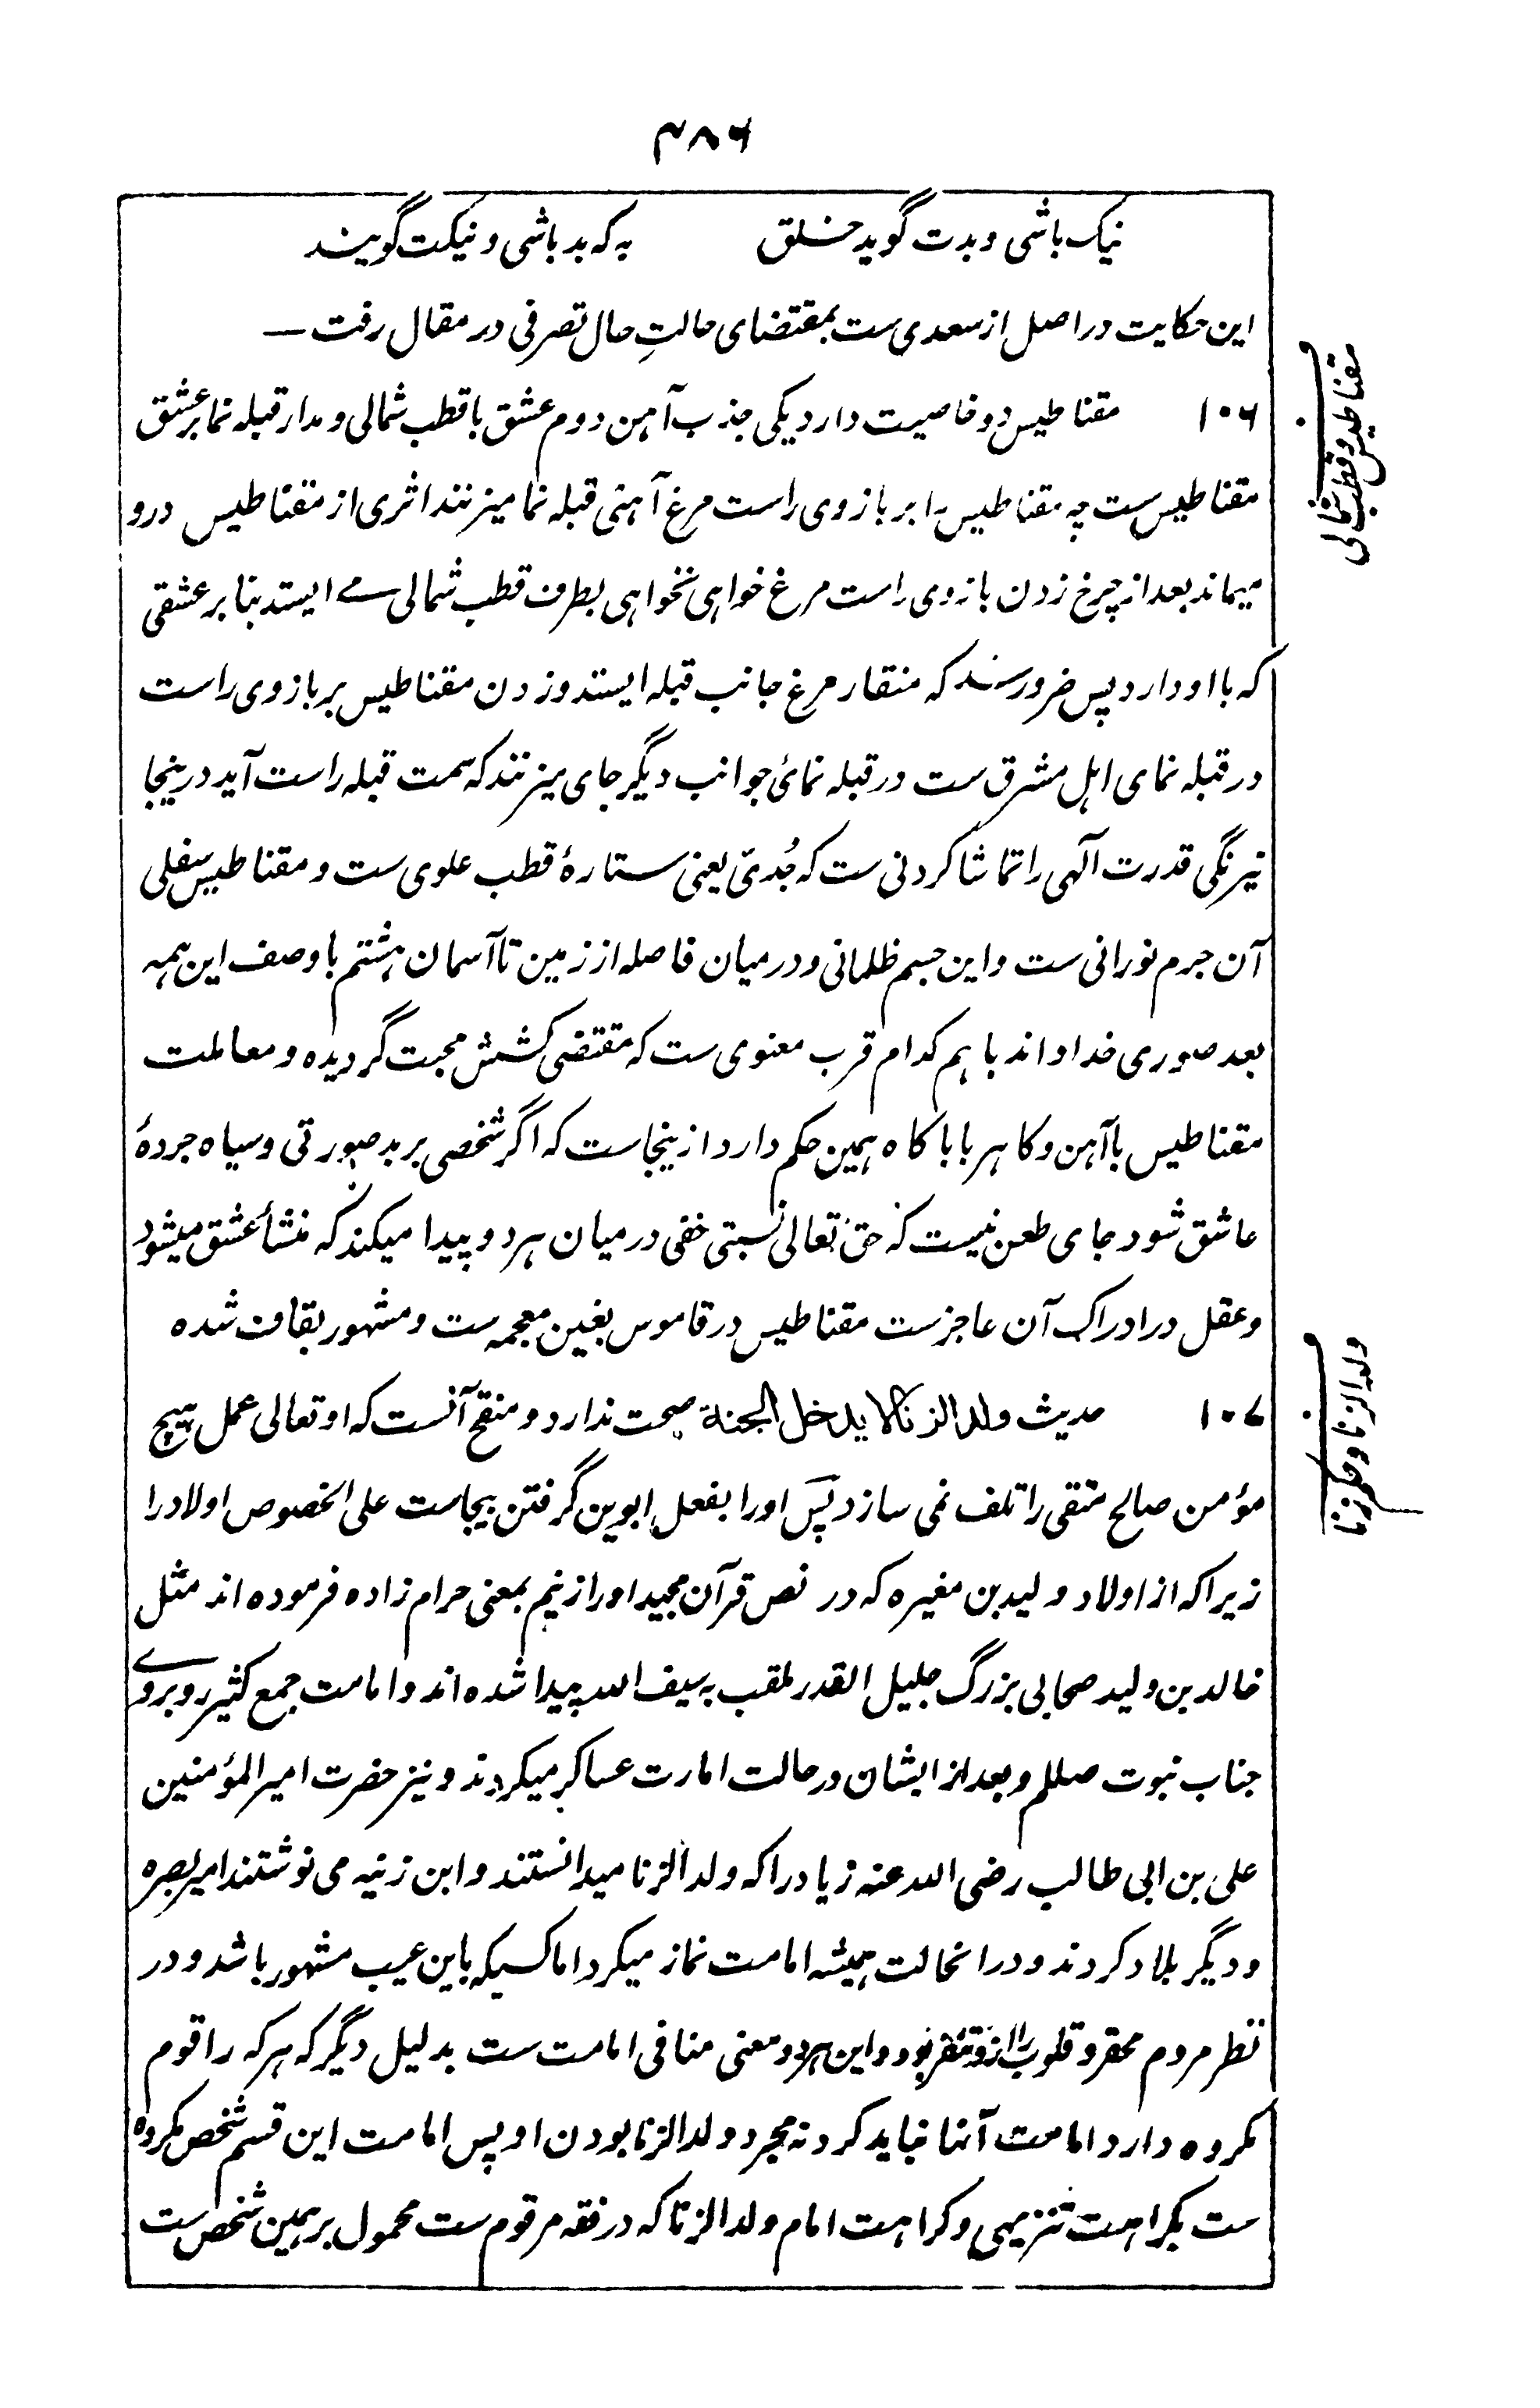 ۴۸۶
نیک باشی و بدت گوید خلق به که بد باشی و نیکت گویند
این حکایت در اصل از سعدی ست بمقتضای حالتِ حال تصرفی در مقال رفت —
۱۰۶ مقناطیس دو خاصیت دارد یکی جذب آهن دوم عشق با قطب شمالی و مدار قبله نما بر عشق
مقناطیس ست چه مقناطیس را بر بازوی راست مرغ آهنی قبله نما میزنند اثری از مقناطیس درو
میماند بعد از چرخ زدن بازوی راست مرغ خواهی نخواهی بطرف قطب شمالی مے ایستد بنا بر عشقی
که با او دارد پس ضرور شد که منقار مرغ جانب قبله ایستد و زدن مقناطیس بر بازوی راست
در قبله نمای اهل مشرق ست در قبله نمائ جوانب دیگر جای میزنند که سمت قبله راست آید درینجا
نیرنگی قدرت آلهی را تماشا کردنی ست که جُدیّ یعنی ستارۂ قطب علوی ست و مقناطیس سفلی
آن جرم نورانی ست و این جسم ظلمانی و درمیان فاصله از زمین تا آسمان هشتم با وصف این همه
بعد صوری خدا داند باهم کدام قرب معنوی ست که مقتضی کشش محبت گردیده و معاملت
مقناطیس با آهن و کاهربا با کاه همین حکم دارد ازینجاست که اگر شخصی بر بد صورتی و سیاه جردۂ
عاشق شود جای طعن نیست که حق تعالی نسبتی خفی درمیان هر دو پیدا میکند که منشأ عشق میشود
و عقل در ادراک آن عاجز ست مقناطیس در قاموس بغین معجمه ست و مشهور بقاف شده
۱۰۷ حدیث ولد الزنا لا یدخل الجنة صحت ندارد و منقح آنست که او تعالی عمل هیچ
مؤمن صالح متقی را تلف نمی سازد پس او را بفعل ابوین گرفتن بیجاست علی الخصوص اولاد را
زیرا که از اولاد ولید بن مغیره که در نص قرآن مجید او را زنیم بمعنی حرام زاده فرموده اند مثل
خالد بن ولید صحابی بزرگ جلیل القدر ملقب به سیف الله پیدا شده اند و امامت جمع کثیر روبروے
جناب نبوت صللم و بعد از ایشان در حالت امارت عساکر میکردند و نیز حضرت امیر المؤمنین
علی بن ابی طالب رضی الله عنه زیاد را که ولد الزنا میدانستند و ابن زنیه می نوشتند امیر بصره
و دیگر بلاد کردند و در انحالت همیشه امامت نماز میکرد اما کسیکه باین عیب مشهور باشد و در
نظر مردم محقر و قلوب را از و تنفر بود و این هر دو معنی منافی امامت ست بدلیل دیگر که هر که را قوم
مکروه دارد امامت آنها نباید کرد نه مجرد ولد الزنا بودن او پس امامت این قسم شخص مکروه
ست بکراهت تنزیهی و کراهت امام ولد الزنا که در فقه مرقوم ست محمول بر همین شخص ست
مقناطیس و قطب شمالی
ولد الزنا و حکم زنا